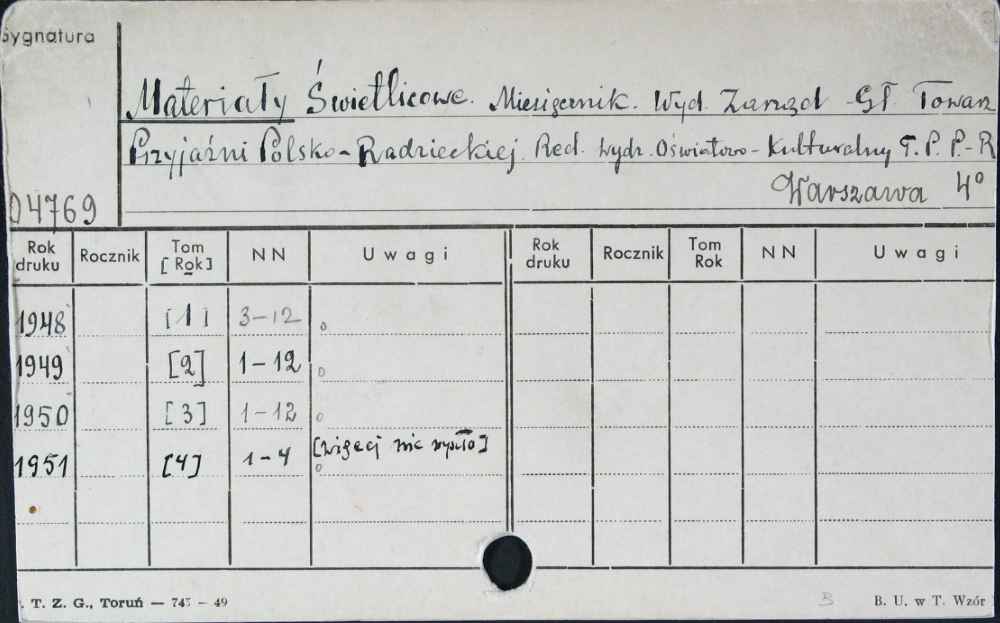 Sygnatura
Materiały Świetlicowe. Miesięcznik. Wyd. Zarząd Gł. Towarz
Przyjaźni Polsko-Radzieckiej. Red. Wydz. Oświatowo-Kulturalny T.P.P.-R
Warszawa 4°
04769
Rok druku Rocznik Tom [Rok] NN Uwagi Rok druku Rocznik Tom Rok NN Uwagi
1948 [1] 3-12
1949 [2] 1-12
1950 [3] 1-12
1951 [4] 1-4 [więcej nie wyszło]
. T. Z. G., Toruń — 745 - 49 B B. U. w T. Wzór